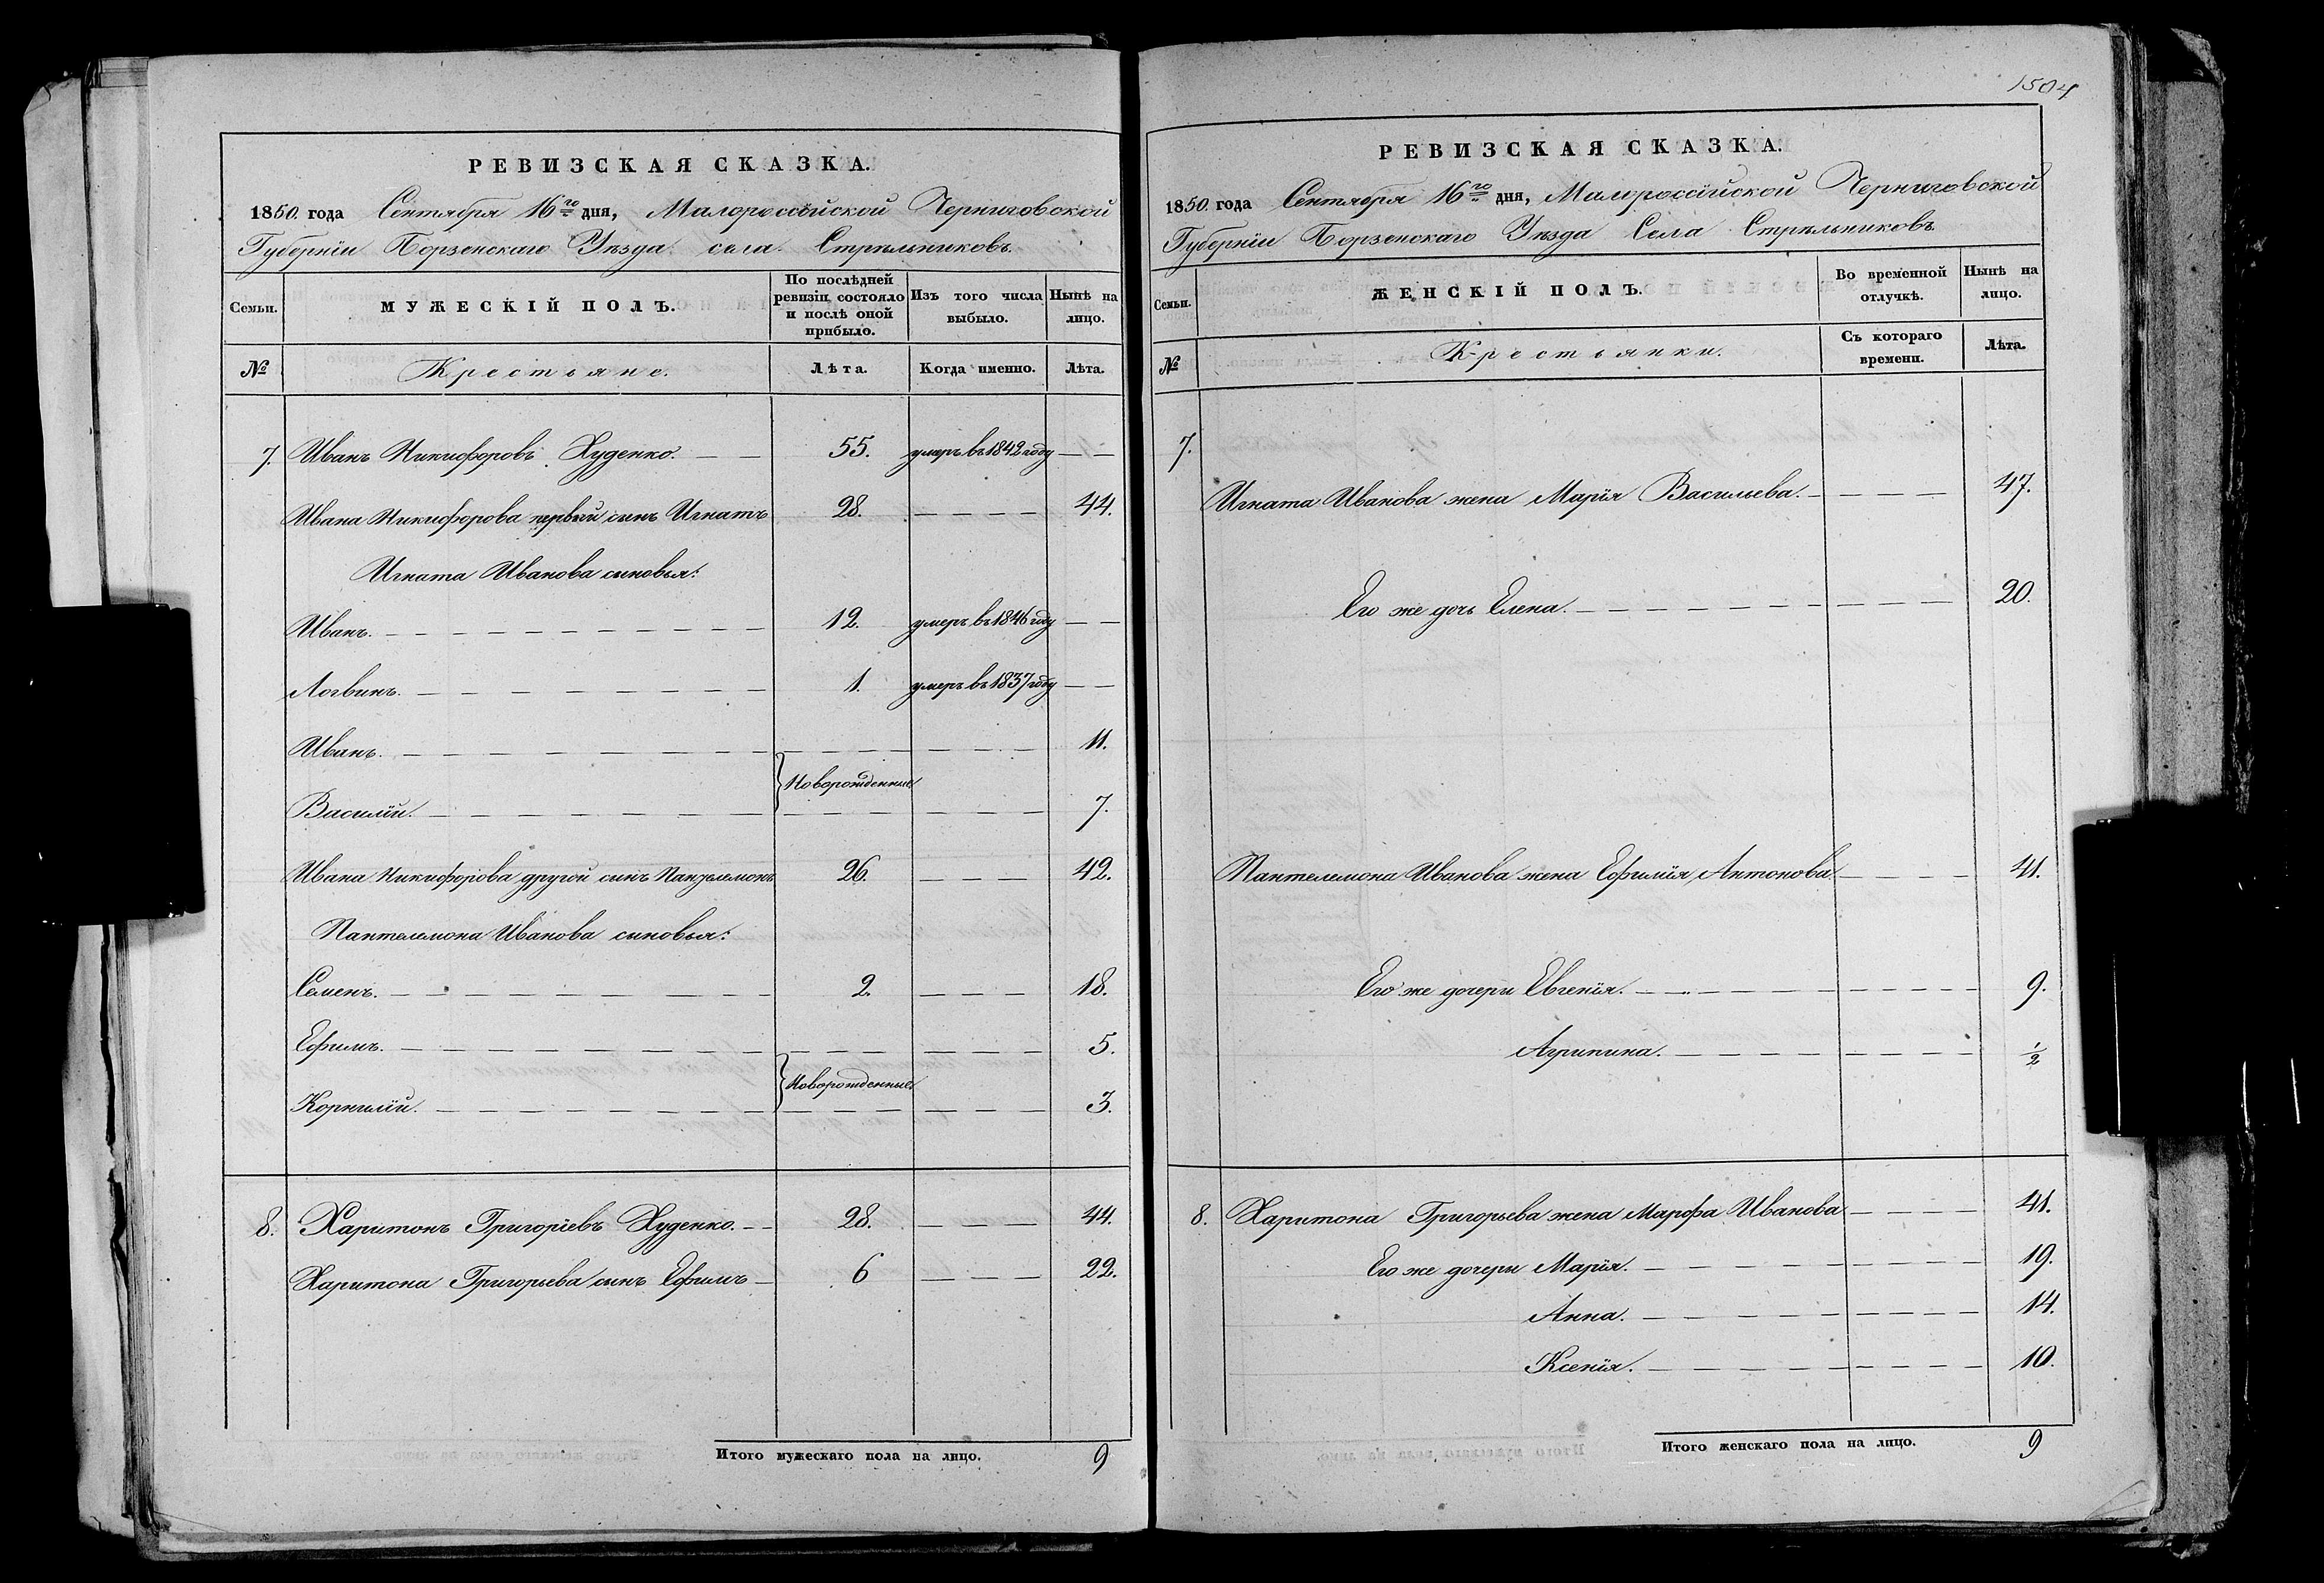 РЕВИЗСКАЯ СКАЗКА.
1850. года Сентября 16го дня, Малороссійской Черниговской
Губерніи Борзенскаго Уѣзда села Стрѣльниковъ.
Семьи.
МУЖЕСКІЙ ПОЛЪ.
По послѣдней ревизіи состояло и послѣ оной прибыло.
Изъ того числа выбыло.
Нынѣ на лицо.
№ Крестьяне. Лѣта. Когда именно. Лѣта.
7. Иванъ Никифоровъ Худенко. — — 55. умеръ въ 1842 году — —
Ивана Никифорова первый сынъ Игнатъ 28. — — — — 44.
Игната Иванова сыновья:
Иванъ. — 12. умеръ въ 1846 году — —
Логвинъ. — 1. умеръ въ 1837 году — —
Иванъ. — 11.
Новорожденные
Василій. — 7.
Ивана Никифорова другой сынъ Пантелемонъ 26. — — — 42.
Пантелемона Иванова сыновья:
Семенъ. — 2. — — — 18.
Ефимъ. — 5.
Новорожденные
Корнилій. — 3.
8. Харитонъ Григоріевъ Худенко. — — 28. — — — 44.
Харитона Григорьева сынъ Ефимъ — 6 — — — 22.
Итого мужескаго пола на лицо. 9
1504
РЕВИЗСКАЯ СКАЗКА.
1850. года Сентября 16го дня, Малороссійской Черниговской
Губерніи Борзенскаго Уѣзда Села Стрѣльниковъ
Семьи.
ЖЕНСКІЙ ПОЛЪ.
Во временной отлучкѣ.
Нынѣ на лицо.
№ Крестьянки. Съ котораго времени. Лѣта.
7.
Игната Иванова жена Марія Васильева. — — — — 47.
Его же дочь Елена. — 20.
Пантелемона Иванова жена Ефимія Антонова — — — — 41.
Его же дочери Евгенія. — 9.
Агрипина. — 1/2
8. Харитона Григорьева жена Марфа Иванова — — — — 41.
Его же дочери Марія. — 19.
Анна. — 14.
Ксенія. — 10.
Итого женскаго пола на лицо. 9